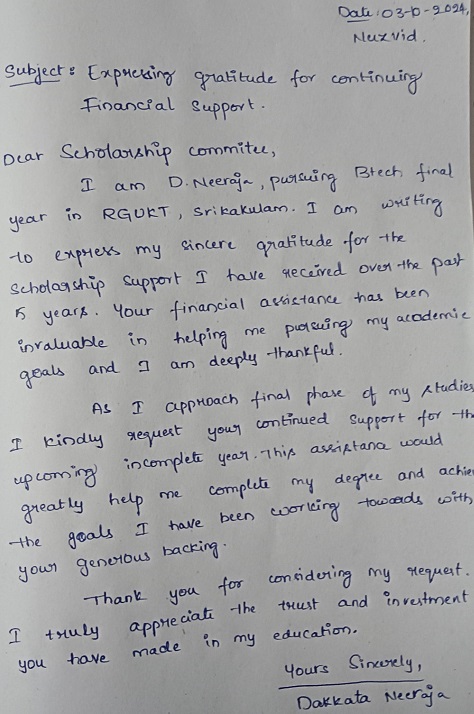 Date : 03-10-2024,
Nuzvid.
Subject : Expressing gratitude for continuing
Financial Support.
Dear Scholarship commitee,
I am D. Neeraja, pursuing Btech final
year in RGUKT, Srikakulam. I am writing
to express my sincere gratitude for the
Scholarship support I have received over the past
5 years. Your financial assistance has been
invaluable in helping me pursuing my academic
goals and I am deeply thankful.
As I approach final phase of my studies
I kindly request your continued support for th
upcoming incomplete year. This assistance would
greatly help me complete my degree and achie
the goals I have been working towards with
your generous backing.
Thank you for considering my request.
I truly appreciate the trust and investment
you have made in my education.
Yours Sincerely,
Dakkata Neeraja